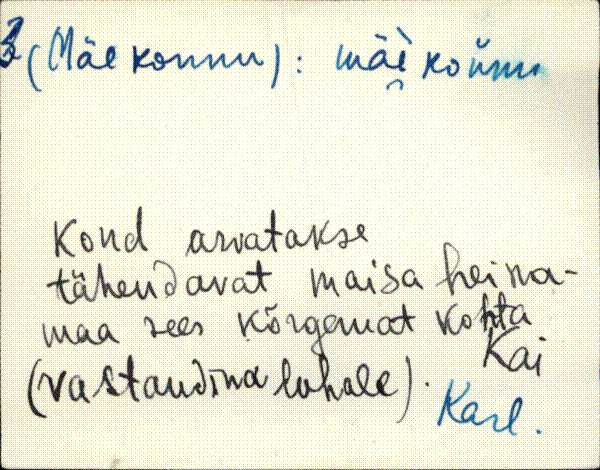 (Mäekonnu): mäè konnu
Kond arvatakse
tähendavat maisa heina-
maa sees kõrgemat kohta
(vastandina luhale).
Kai
Karl.